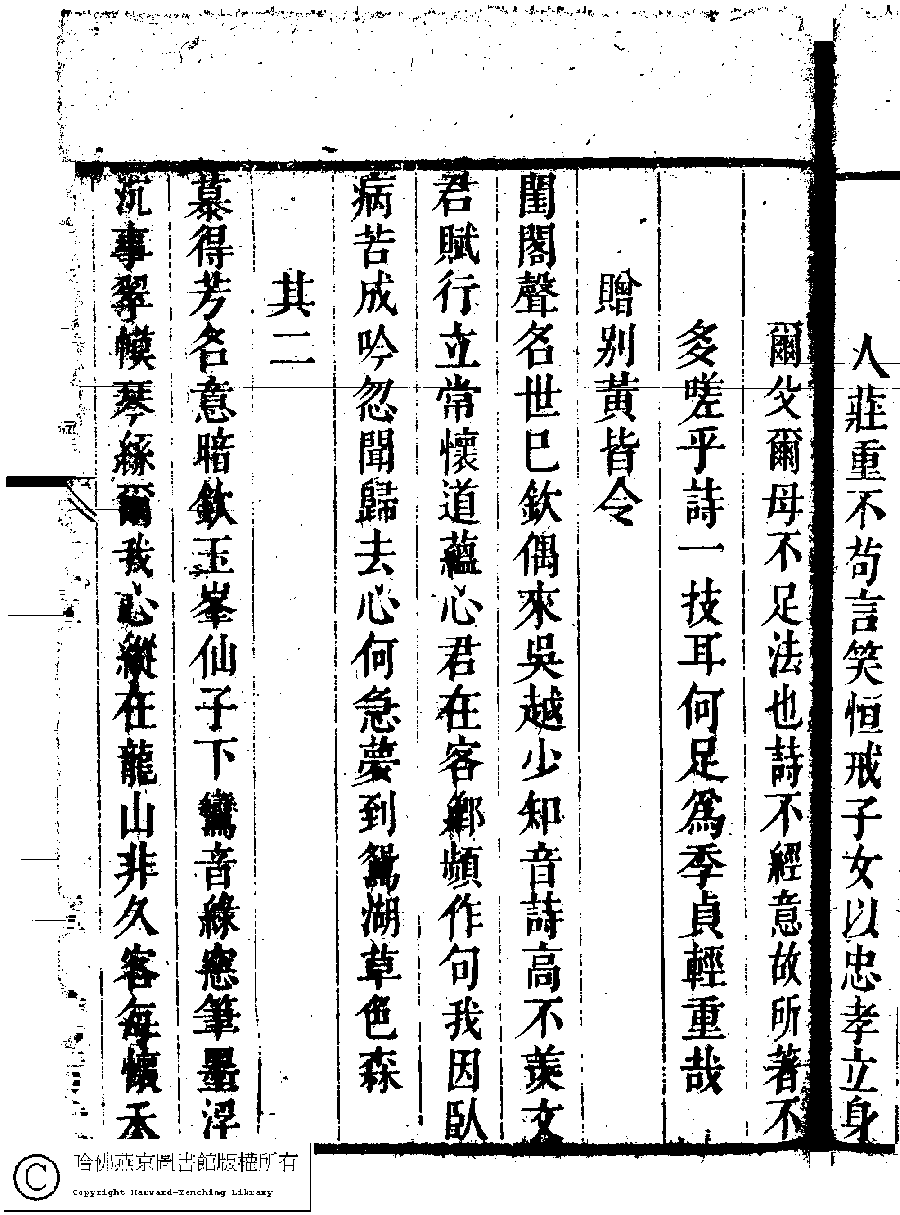 人莊重不苟言笑恒戒子女以忠孝立身
爾父爾母不足法也詩不經意故所著不
多嗟乎詩一技耳何足爲季貞輕重哉
贈别黃皆令
閨閣聲名世巳欽偶來吳越少知音詩高不羨文
君賦行立常懷道蘊心君在客鄉頻作句我因臥
病苦成吟忽聞歸去心何急夢到鴛湖草色森
其二
慕得芳名意暗欽玉峯仙子下鸞音綠窓筆墨浮
沉事翠幙琴絲爾我心縱在龍山非久客每懷禾
哈佛燕京圖書館版權所有
Copyright Harvard-Yenching Library